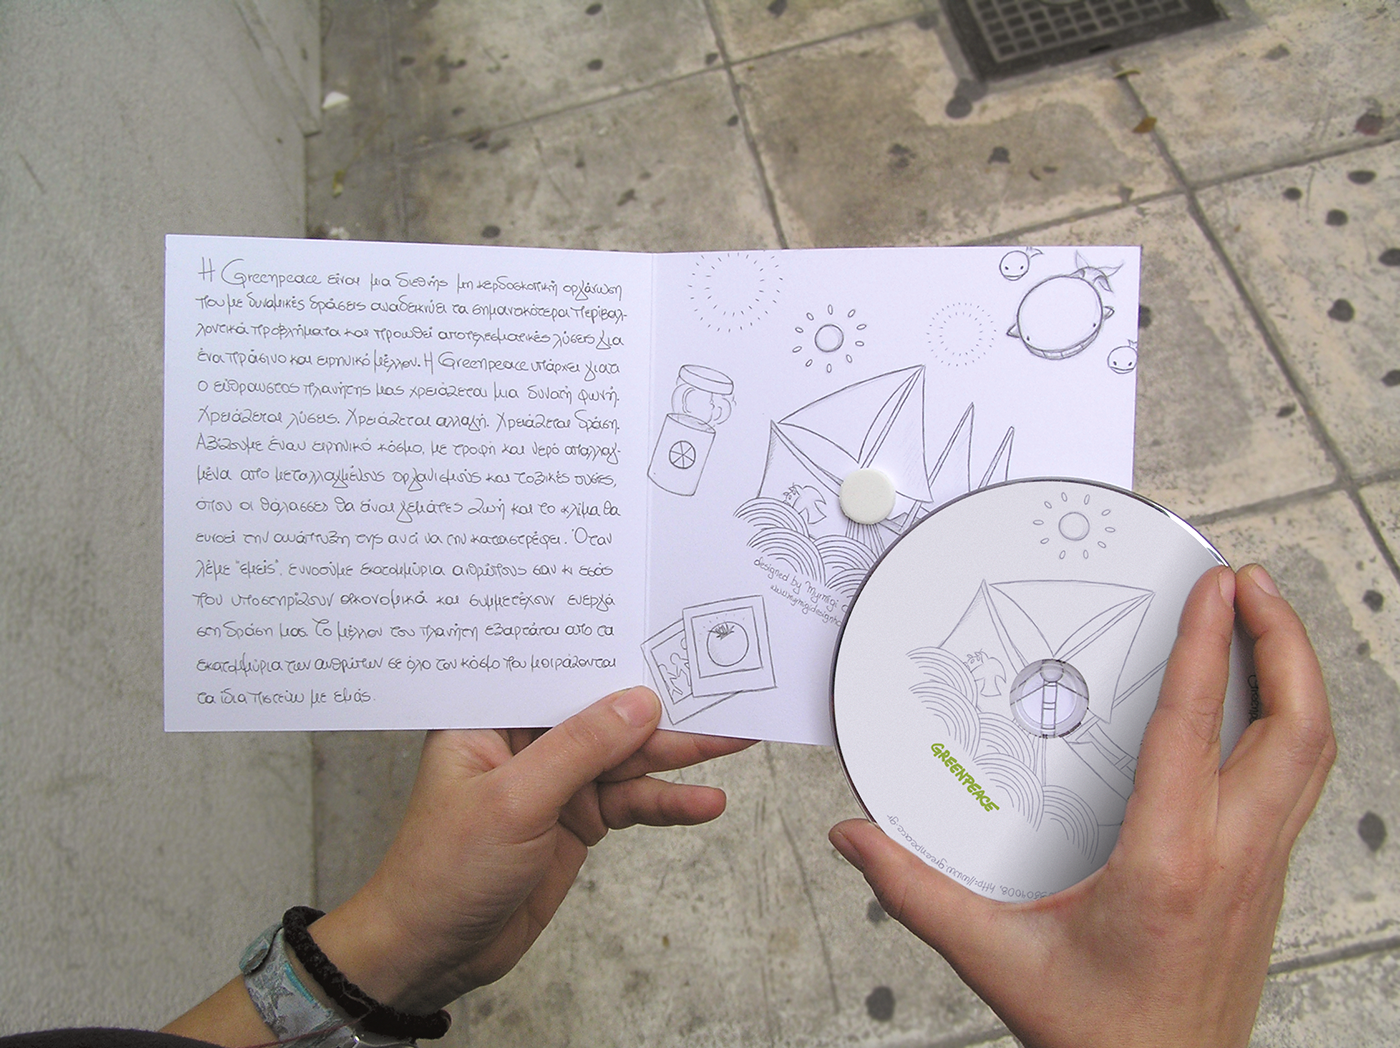 Η Greenpeace είναι μια διεθνής μη κερδοσκοπική οργάνωση
που με δυναμικές δράσεις αναδεικνύει τα σημαντικότερα περιβαλ-
λοντικά προβλήματα και προωθεί αποτελεσματικές λύσεις για
ένα πράσινο και ειρηνικό μέλλον. Η Greenpeace υπάρχει γιατί
ο εύθραυστος πλανήτης μας χρειάζεται μια δυνατή φωνή.
Χρειάζεται λύσεις. Χρειάζεται αλλαγή. Χρειάζεται δράση.
Αξίζουμε έναν ειρηνικό κόσμο, με τροφή και νερό απαλλαγ-
μένα απο μεταλλαγμένους οργανισμούς και τοξικές ουσίες,
όπου οι θάλασσες θα είναι γεμάτες ζωή και το κλίμα θα
ευνοεί την ανάπτυξη της αντί να την καταστρέφει. Όταν
λέμε "εμείς", εννοούμε εκατομμύρια ανθρώπους σαν κι εσάς
που υποστηρίζουν οικονομικά και συμμετέχουν ενεργά
στη δράση μας. Το μέλλον του πλανήτη εξαρτάται απο τα
εκατομμύρια των ανθρώπων σε όλο τον κόσμο που μοιράζονται
τα ίδια πιστεύω με εμάς.
designed by
GREENPEACE
http://www.greenpeace.gr